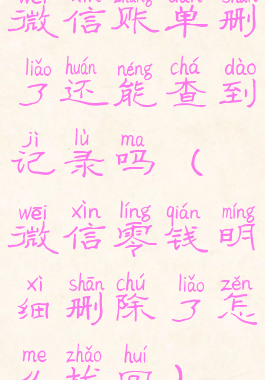 wēi xìn zhàng dān shān
微信账单删
liǎo huán néng chá dào
了还能查到
jì lù ma
记录吗（
wēi xìn líng qián míng
微信零钱明
xì shān chú liǎo zěn
细删除了怎
me zhǎo huí
么找回）